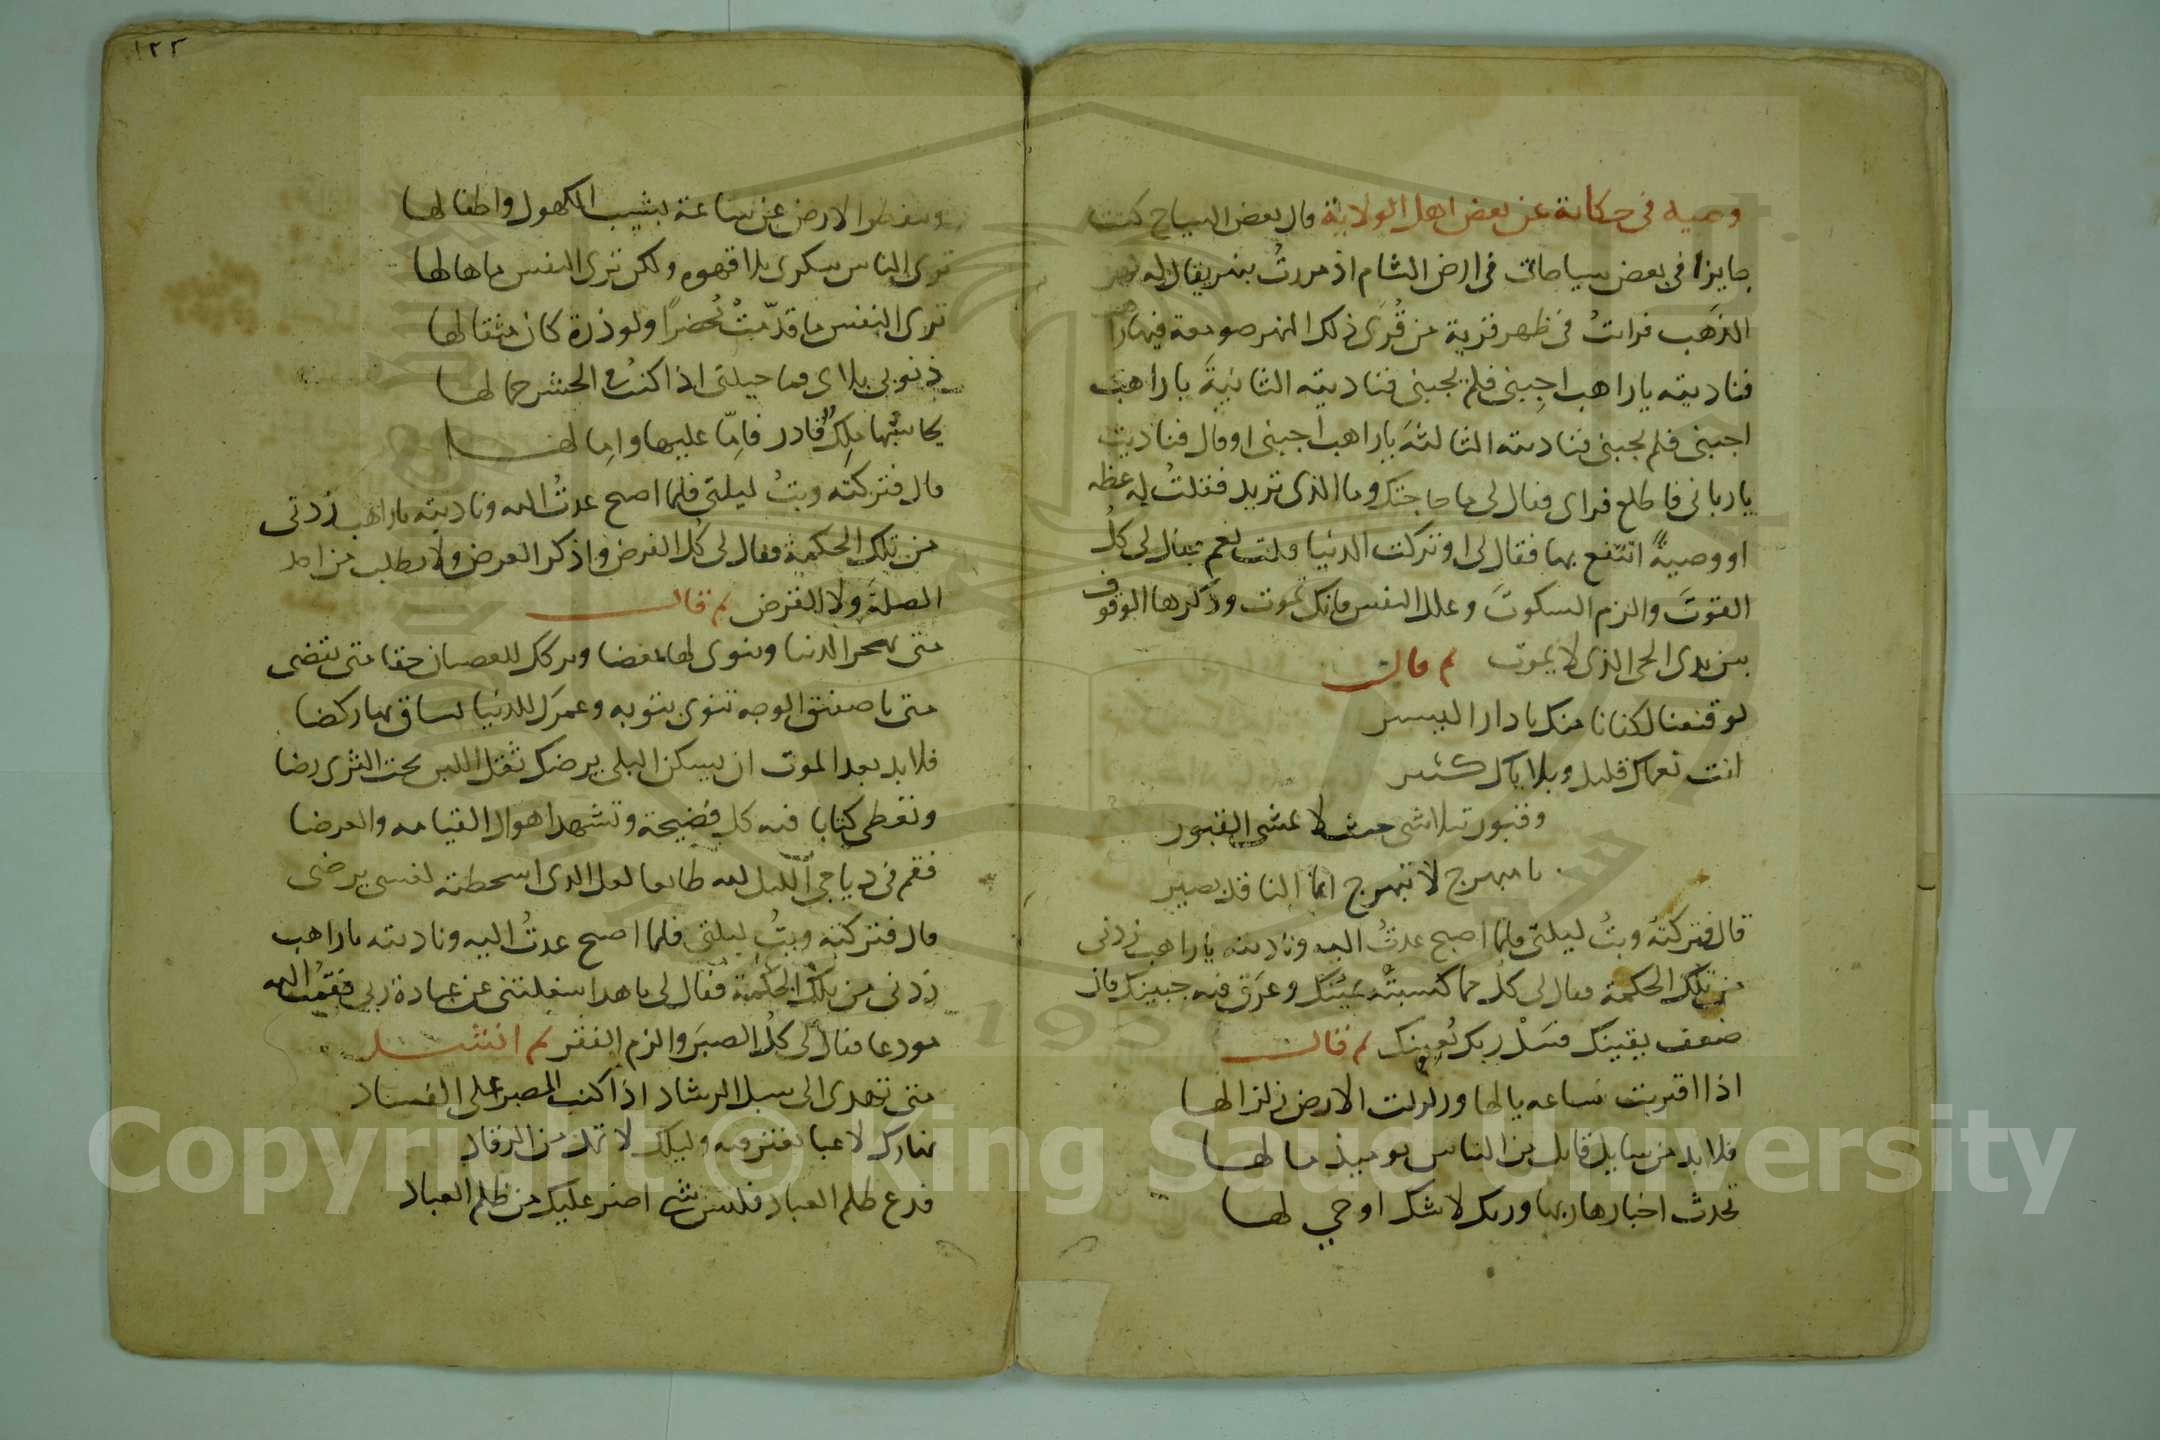 وصيه في حكاية عن بعض اهل الولاية قال بعض السياح كنت
جايزا في بعض سياحاتي في ارض الشام اذ مررت بنهر يقال له نهر
الذهب فرايت في ظهر قرية من قرى ذلك النهر صومعة فيها راهب
فناديته يا راهب اجبني فلم يجبني فناديته الثانية يا راهب
اجبني فلم يجبني فناديته الثالثة يا راهب اجبني او قال فناديت
يا رباني فاطلع فراي فقال لي ما حاجتك وما الذي تريد فقلت له عظه
او وصية انتفع بها فقال لي او تركت الدنيا قلت نعم فقال لي كل
القوت والزم السكوت وعلل النفس فانك تموت وذكرها الوقوف
بين يدي الحي الذي لا يموت ثم قال
لو قنعنا لكفانا منك يا دار اليسير
انت نعماك قليل وبلاياك كثير
وقبور تتلاشى حيث لا تمشي القبور
يا مبهرج لا تبهرج انما الناقد بصير
قال فتركته وبت ليلتي فلما اصبح عدت اليه وناديته يا راهب زدني
من تلك الحكمة فقال لي كل مما كسبته يمينك وعرق فيه جبينك فان
ضعف يقينك فسل ربك يعينك ثم قال
اذا اقتربت ساعه يا لها وزلزلت الارض زلزالها
فلا بد من سايل قايل من الناس يوميذ ما لها
تحدث اخبارها ربها وربك لا شك اوحي لها
١٢٣
وتنفطر الارض عن ساعة يشيب الكهول واطفالها
ترى الناس سكرى بلا قهوه ولكن ترى النفس ما هالها
ترى النفس ما قدمت محضرا ولو ذرة كان مثقالها
ذنوبي بلاي فما حيلتي اذا كنت في الحشر حمالها
يحاسبها ملك قادر فاما عليها واما لها
قال فتركته وبت ليلتي فلما اصبح عدت اليه وناديته يا راهب زدني
من تلك الحكمة فقال لي كل الفرض واذكر العرض ولا تطلب من احد
الصلة ولا القرض ثم قال
متى تهجر الدنيا وتنوي لها بغضا وتركك للعصيان حقا متى يقضى
متى يا صفيق الوجه تنوي بتوبه وعمرك للدنيا تساق بها ركضا
فلا بد بعد الموت ان يسكن البلي يرضك ثقل اللبن تحت الثرى رضا
وتعطى كتابا فيه كل فضيحة وتشهد اهوال القيامه والعرضا
فقم في دياجي الليل لله طايعا لعل الذي اسخطته لفسى يرضى
قال فتركته وبت ليلتي فلما اصبح عدت اليه وناديته يا راهب
زدني من تلك الحكمة فقال لي يا هذا شغلتني عن عبادة ربي فقمت اليه
مودعا فقال لي كل الصبر والزم الفقر ثم انشد
متى تهدى الى سبل الرشاد اذا كنت المصر على الفساد
نهارك لاعبا تغتر فيه وليلك لا تمل من الرقاد
فدع ظلم العباد فليس شيء اضر عليك من ظلم العباد
Copyright © King Saud University
1957